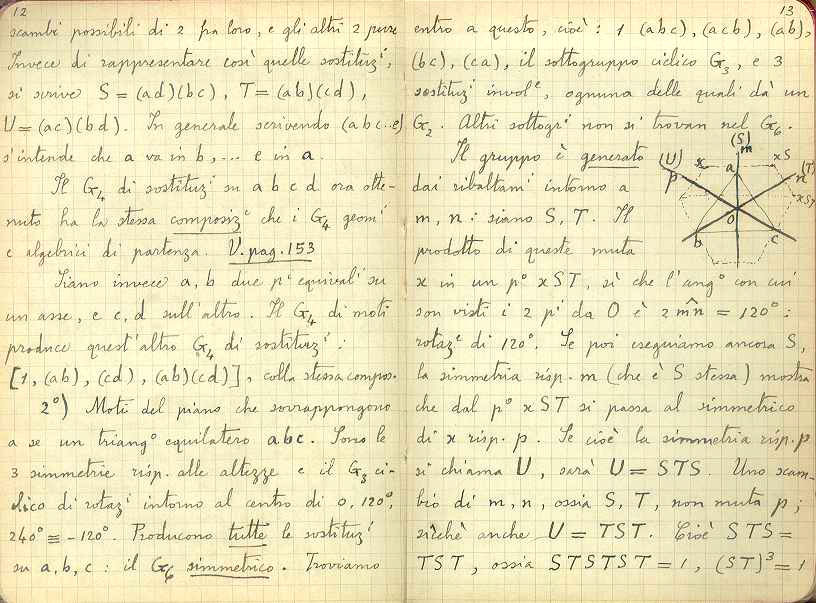 12
scambi possibili di 2 fra loro, e gli altri 2 pure
Invece di rappresentare così quelle sostituzⁱ,
si scrive S = (ad)(bc), T = (ab)(cd),
U = (ac)(bd). In generale scrivendo (abc...e)
s'intende che a va in b, ... e in a.
Il G₄ di sostituzⁱ su a b c d ora otte-
nuto ha la stessa composizᵉ che i G₄ geomⁱ
e algebrici di partenza. V. pag. 153
Siano invece a, b due pⁱ equivalⁱ su
un asse, e c, d sull'altro. Il G₄ di moti
produce quest'altro G₄ di sostituzⁱ:
[1, (ab), (cd), (ab)(cd)], colla stessa compos.
2°) Moti del piano che sovrappongono
a se un triangᵒ equilatero abc. Sono le
3 simmetrie risp. alle altezze e il G₃ ci-
clico di rotazⁱ intorno al centro di 0, 120°,
240° ≡ -120°. Producono tutte le sostituzⁱ
su a, b, c: il G₆ simmetrico. Troviamo
13
entro a questo, cioè: 1 (abc), (acb), (ab),
(bc), (ca), il sottogruppo ciclico G₃, e 3
sostituzⁱ involᵉ, ognuna delle quali dà un
G₂. Altri sottogrⁱ non si trovan nel G₆.
Il gruppo è generato
dai ribaltamⁱ intorno a
m, n: siano S, T. Il
prodotto di queste muta
x in un pᵒ xST, sì che l'angᵒ con cui
son visti i 2 pⁱ da O è 2 m̂n = 120°:
rotazᵉ di 120°. Se poi eseguiamo ancora S,
la simmetria risp. m (che è S stessa) mostra
che dal pᵒ xST si passa al simmetrico
di x risp. p. Se cioè la simmetria risp. p
si chiama U, sarà U = STS. Uno scam-
bio di m, n, ossia S, T, non muta p;
sicchè anche U = TST. Cioè STS =
TST, ossia STSTST = 1, (ST)³ = 1
(S)
m
(U)
x
a
xS
(T)
p
n
xST
O
b
c